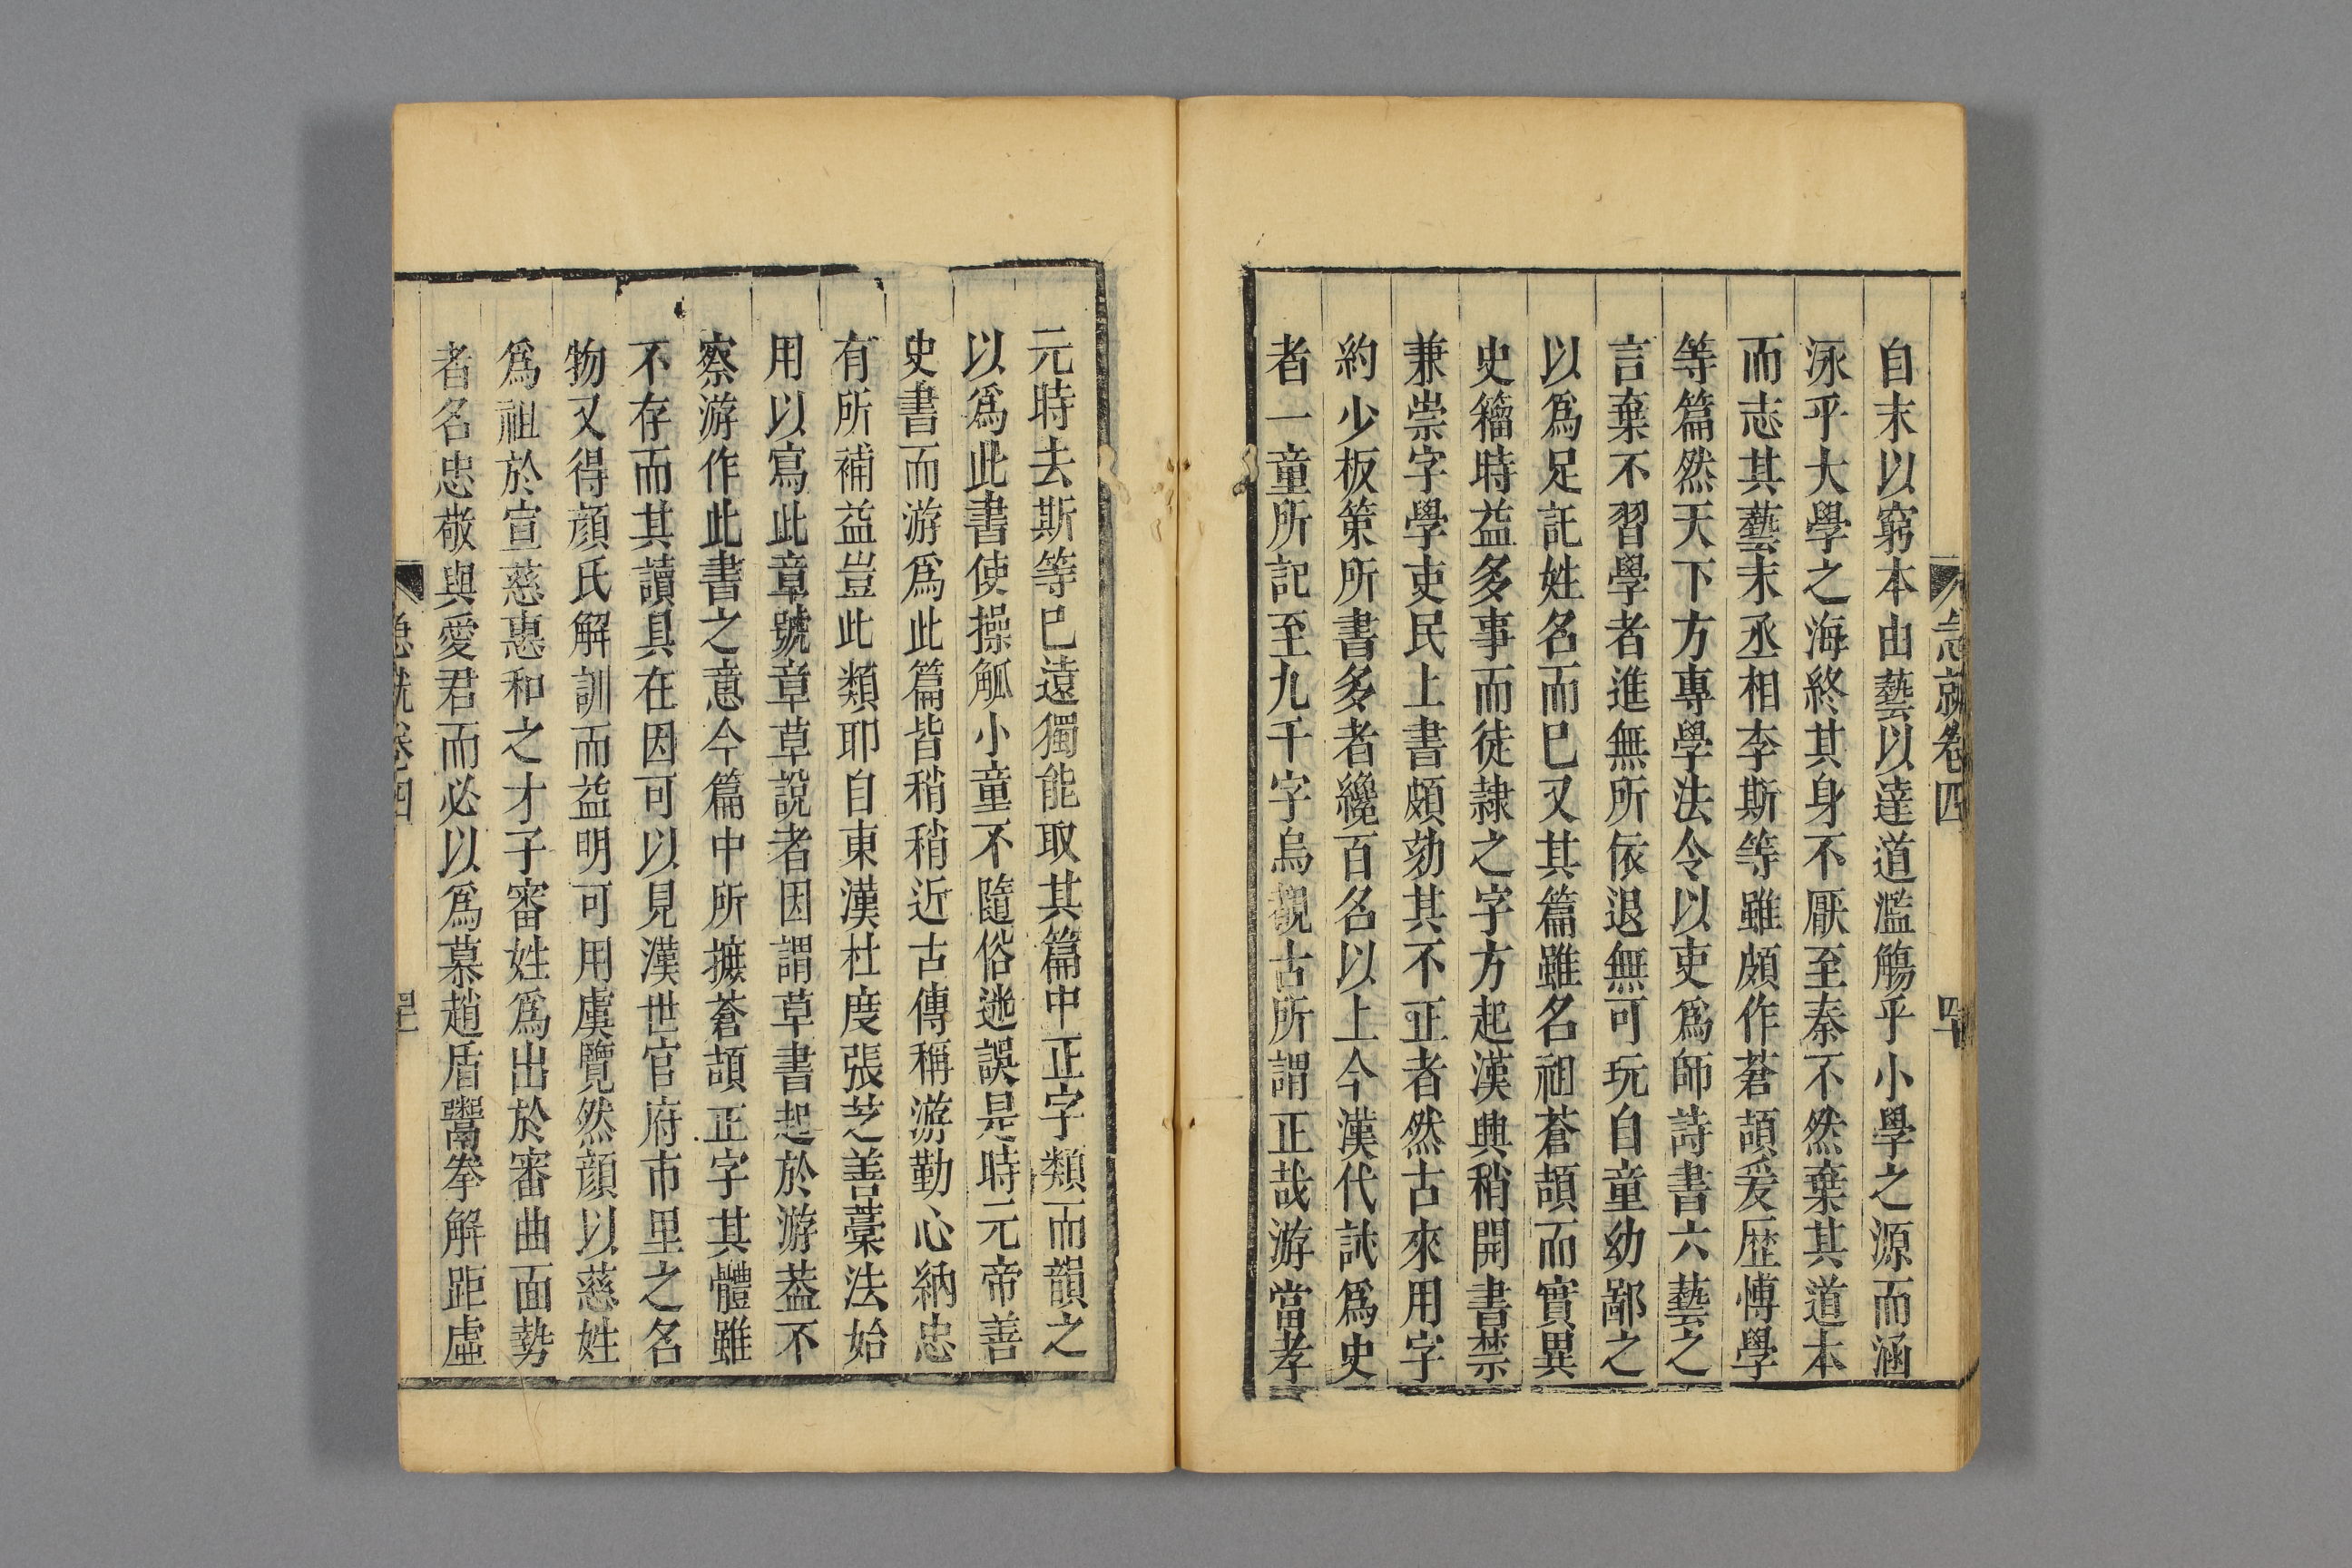 急就卷四
四十
自末以窮本由藝以達道濫觴乎小學之源而涵
泳乎大學之海終其身不厭至秦不然棄其道本
而志其藝末丞相李斯等雖頗作蒼頡爰歴愽學
等篇然天下方專學法令以吏爲師詩書六藝之
言棄不習學者進無所依退無可玩自童幼鄙之
以爲足託姓名而已又其篇雖名祖蒼頡而實異
史籀時益多事而徒隷之字方起漢興稍開書禁
兼崇字學吏民上書頗劾其不正者然古來用字
約少板策所書多者纔百名以上今漢代試爲史
者一童所記至九千字烏覩古所謂正哉游當孝
元時去斯等已遠獨能取其篇中正字類而韻之
以爲此書使操觚小童不隨俗迷誤是時元帝善
史書而游爲此篇皆稍稍近古傳稱游勤心納忠
有所補益豈此類耶自東漢杜度張芝善藁法始
用以寫此章號章草說者因謂草書起於游葢不
察游作此書之意今篇中所摭蒼頡正字其體雖
不存而其讀具在因可以見漢世官府市里之名
物又得顔氏解訓而益明可用虞覽然顔以慈姓
爲祖於宣慈惠和之才子審姓爲出於審曲面勢
者名忠敬與愛君而必以爲慕趙盾鬻拳解距虛
急就卷四